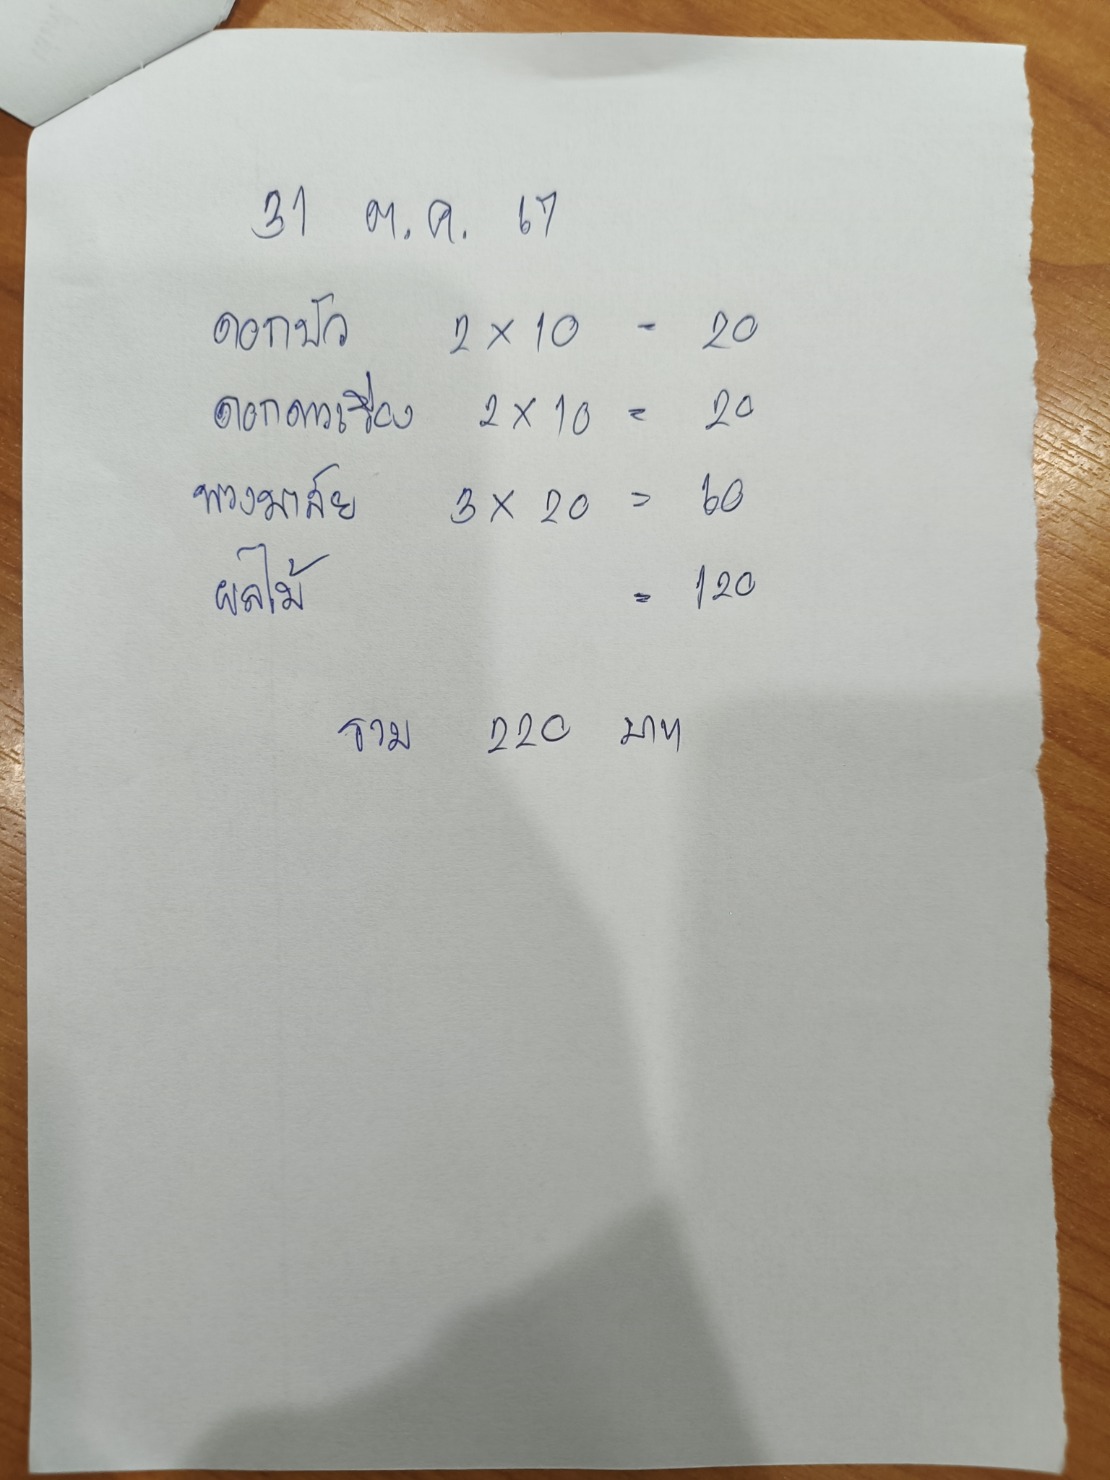 31 ต.ค. 67
ดอกบัว 2 × 10 - 20
ดอกดาวเรือง 2 × 10 = 20
พวงมาลัย 3 × 20 = 60
ผลไม้ = 120
รวม 220 บาท